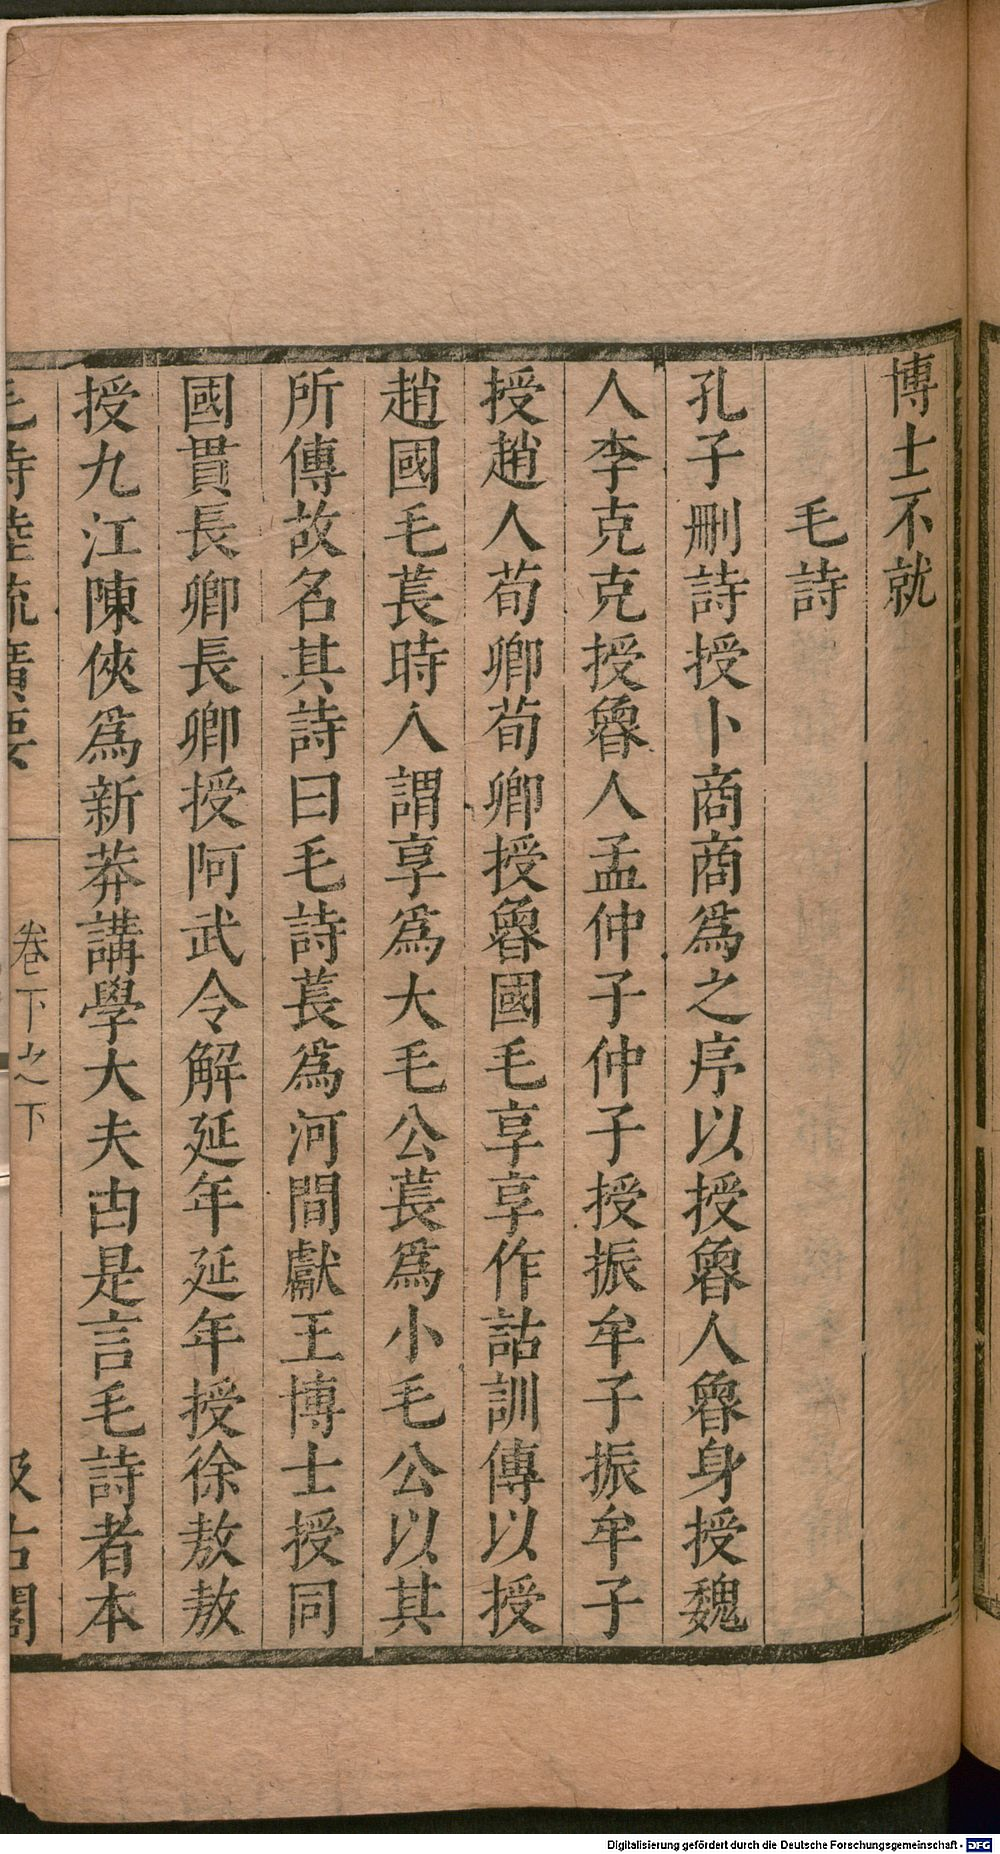 博士不就
毛詩
孔子刪詩授卜商商爲之序以授魯人魯身授魏
人李克克授魯人孟仲子仲子授振牟子振牟子
授趙人荀卿荀卿授魯國毛享享作詁訓傳以授
趙國毛萇時人謂享爲大毛公萇爲小毛公以其
所傳故名其詩曰毛詩萇爲河間獻王博士授同
國貫長卿長卿授阿武令解延年延年授徐敖敖
授九江陳俠爲新莽講學大夫由是言毛詩者本
毛詩陸疏廣要 卷下之下 汲古閣
Digitalisierung gefördert durch die Deutsche Forschungsgemeinschaft - DFG